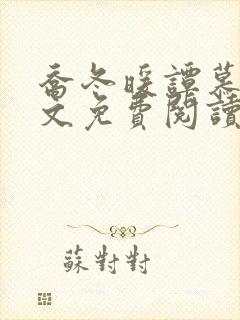 喬冬暖譚慕
文免費閱讀
蘇對對